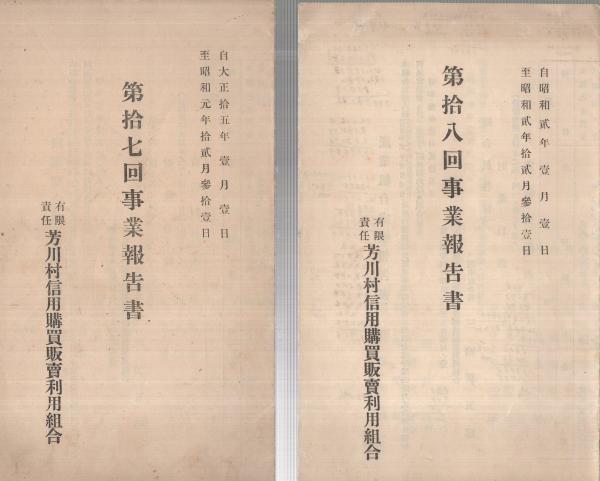 自昭和貳年壹月壹日
至昭和貳年拾貳月參拾壹日
第拾八回事業報告書
有限
責任
芳川村信用購買販賣利用組合
自大正拾五年壹月壹日
至昭和元年拾貳月參拾壹日
第拾七回事業報告書
有限
責任
芳川村信用購買販賣利用組合